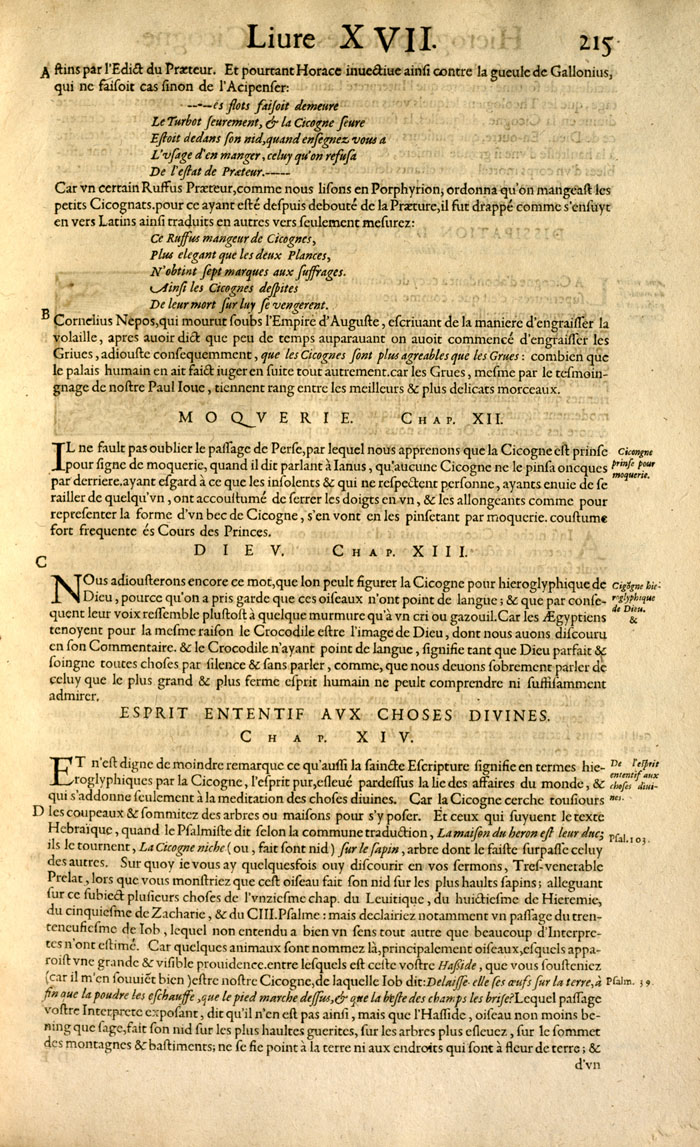 Liure XVII. 215
A stins par l'Edict du Præteur. Et pourtant Horace inuectiue ainsi contre la gueule de Gallonius,
qui ne faisoit cas sinon de l'Acipenser:
-----és flots faisoit demeure
Le Turbot seurement, & la Cicogne seure
Estoit dedans son nid, quand enseignez vous a
L'vsage d'en manger, celuy qu'on refusa
De l'estat de Præteur.-----
Car vn certain Ruffus Præteur, comme nous lisons en Porphyrion, ordonna qu'on mangeast les
petits Cicognats. pour ce ayant esté despuis debouté de la Præture, il fut drappé comme s'ensuyt
en vers Latins ainsi traduits en autres vers seulement mesurez:
Ce Ruffus mangeur de Cicognes,
Plus elegant que les deux Plances,
N'obtint sept marques aux suffrages.
Ainsi les Cicognes despites
De leur mort sur luy se vengerent.
B Cornelius Nepos, qui mourut soubs l'Empire d'Auguste, escriuant de la maniere d'engraisser la
volaille, apres auoir dict que peu de temps auparauant on auoit commencé d'engraisser les
Griues, adiouste consequemment, que les Cicognes sont plus agreables que les Grues: combien que
le palais humain en ait faict iuger en suite tout autrement. car les Grues, mesme par le tesmoin-
gnage de nostre Paul Ioue, tiennent rang entre les meilleurs & plus delicats morceaux.
MOQVERIE. CHAP. XII.
IL ne fault pas oublier le passage de Perse, par lequel nous apprenons que la Cicogne est prinse
pour signe de moquerie, quand il dit parlant à Ianus, qu'aucune Cicogne ne le pinsa oncques
par derriere. ayant esgard à ce que les insolents & qui ne respectent personne, ayants enuie de se
railler de quelqu'vn, ont accoustumé de serrer les doigts en vn, & les allongeants comme pour
representer la forme d'vn bec de Cicogne, s'en vont en les pinsetant par moquerie. coustume
fort frequente és Cours des Princes.
Cicongne
prinse pour
moquerie.
DIEV. CHAP. XIII.
C
NOus adiousterons encore ce mot, que lon peult figurer la Cicogne pour hieroglyphique de
Dieu, pource qu'on a pris garde que ces oiseaux n'ont point de langue; & que par conse-
quent leur voix ressemble plustost à quelque murmure qu'à vn cri ou gazouil. Car les Ægyptiens
tenoyent pour la mesme raison le Crocodile estre l'image de Dieu, dont nous auons discouru
en son Commentaire. & le Crocodile n'ayant point de langue, signifie tant que Dieu parfait &
soingne toutes choses par silence & sans parler, comme, que nous deuons sobrement parler de
celuy que le plus grand & plus ferme esprit humain ne peult comprendre ni suffisamment
admirer.
Cigōgne hie-
roglyphique
de Dieu.
&
ESPRIT ENTENTIF AVX CHOSES DIVINES.
CHAP. XIV.
ET n'est digne de moindre remarque ce qu'aussi la saincte Escripture signifie en termes hie-
roglyphiques par la Cicogne, l'esprit pur, esleué pardessus la lie des affaires du monde, &
qui s'addonne seulement à la meditation des choses diuines. Car la Cicogne cerche tousiours
D les coupeaux & sommitez des arbres ou maisons pour s'y poser. Et ceux qui suyuent le texte
Hebraïque, quand le Psalmiste dit selon la commune traduction, La maison du heron est leur duc;
ils le tournent, La Cicogne niche (ou, fait son nid) sur le sapin, arbre dont le faiste surpasse celuy
des autres. Sur quoy ie vous ay quelquesfois ouy discourir en vos sermons, Tres-venerable
Prelat, lors que vous monstriez que cest oiseau fait son nid sur les plus haults sapins; alleguant
sur ce subiect plusieurs choses de l'vnziesme chap. du Leuitique, du huictiesme de Hieremie,
du cinquiesme de Zacharie, & du CIII. Psalme: mais declairiez notamment vn passage du tren-
teneufiesme de Iob, lequel non entendu a bien vn sens tout autre que beaucoup d'Interpre-
tes n'ont estimé. Car quelques animaux sont nommez là, principalement oiseaux, esquels appa-
roist vne grande & visible prouidence. entre lesquels est ceste vostre Haßide, que vous sousteniez
(car il m'en souuiēt bien) estre nostre Cicogne, de laquelle Iob dit: Delaisse-elle ses œufs sur la terre, à
fin que la poudre les eschauffe, que le pied marche dessus, & que la beste des champs les brise? Lequel passage
vostre Interprete exposant, dit qu'il n'en est pas ainsi, mais que l'Hasside, oiseau non moins be-
ning que sage, fait son nid sur les plus haultes guerites, sur les arbres plus esleuez, sur le sommet
des montagnes & bastiments; ne se fie point à la terre ni aux endroits qui sont à fleur de terre; &
d'vn
De l'esprit
ententif aux
choses diui-
nes.
Psal. 103.
Psalm. 39.